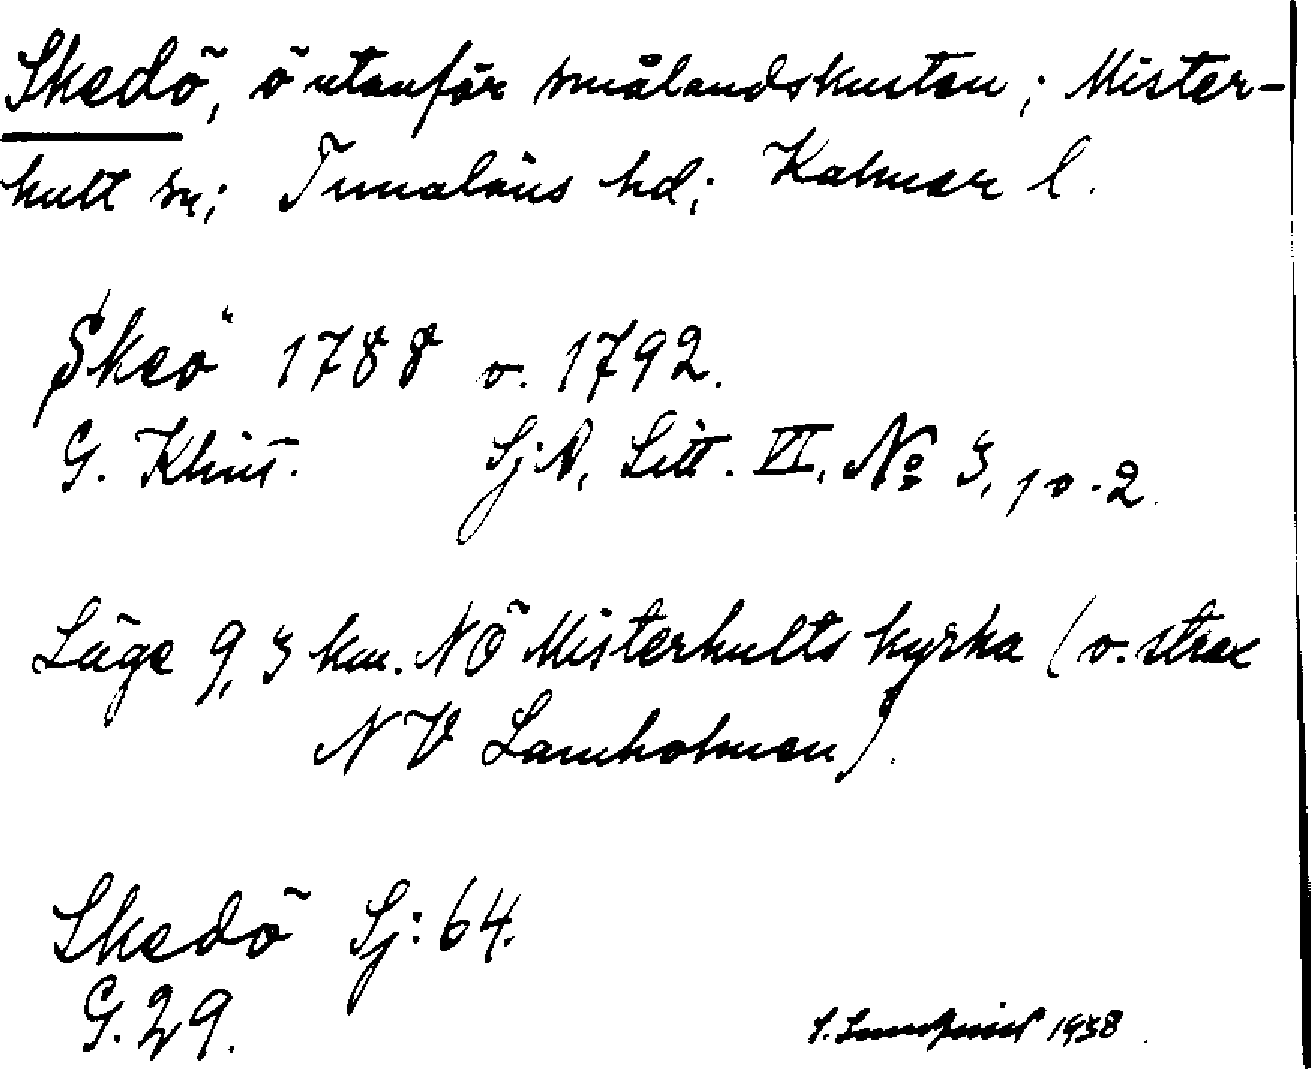 Skedö, ö utanför smålandskusten; Mister-
hult sn; Tunaläns hd; Kalmar l.
Skeö 1788 o. 1792.
G. Klint. SjA, Litt. VI, № 3, 1 o. 2.
Läge 9,3 km. NÖ Misterhults kyrka (o. strax
NV Lamholmen).
Skedö Sj: 64.
G. 29.
S. Lundquist 1938.